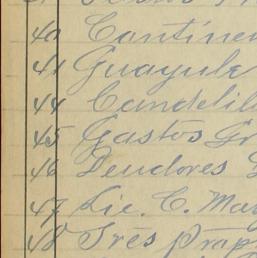 40 Cantinen
41 Guayule
44 Candelil
45 Gastos Gr
46 Deudores
47 Lic. C. May
48 Tres Prop